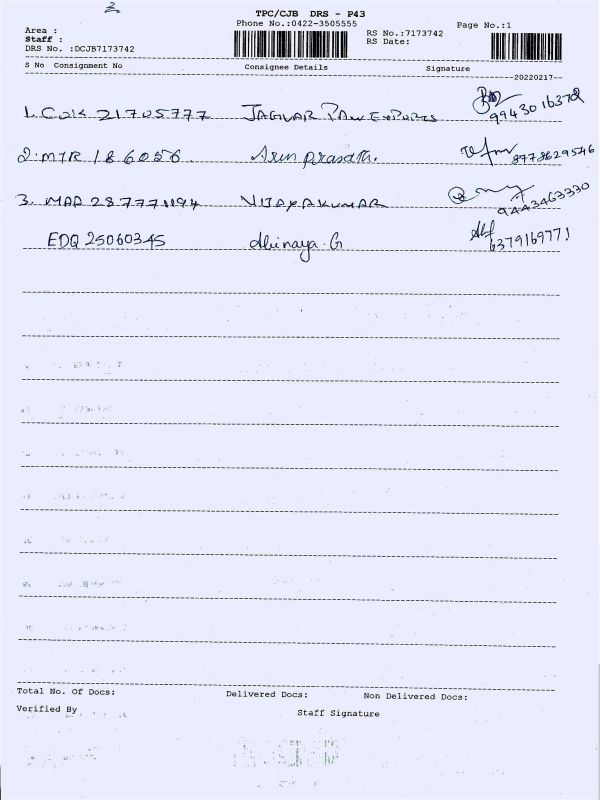 2
TPC/CJB DRS - P43
Phone No.:0422-3505555
Page No.:1
Area :
RS No.:7173742
Staff :
RS Date:
DRS No. :DCJB7173742
S No Consignment No Consignee Details Signature
20220217
1. COK 21705777 JAGUAR PAW EXPORTS 9943016372
2. MTR 186056 Arun prasath. 8778629546
3. MAA 287771194 VIJAYAKUMAR 9443463330
EDQ 25060345 Abinaya. G 6379169771
Total No. Of Docs: Delivered Docs: Non Delivered Docs:
Verified By Staff Signature